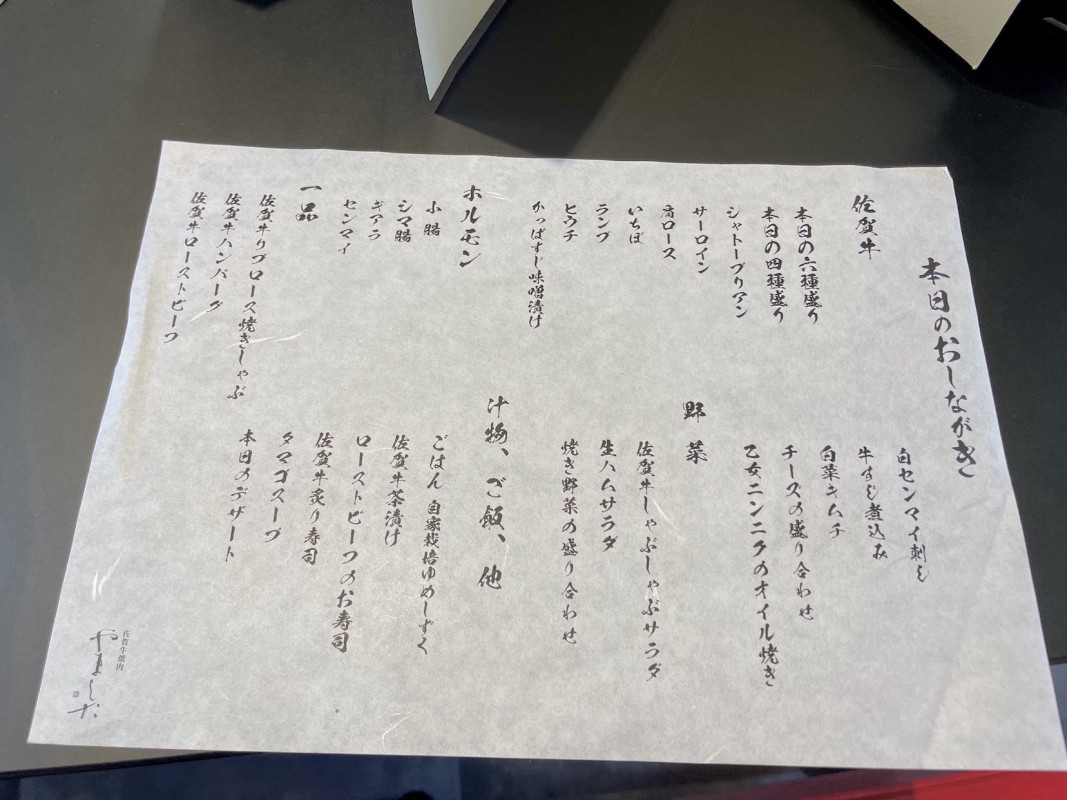 本日のおしながき
佐賀牛
本日の六種盛り
本日の四種盛り
シャトーブリアン
サーロイン
肩ロース
いちぼ
ランプ
ヒウチ
かっぱすじ味噌漬け
ホルモン
小腸
シマ腸
ギアラ
センマイ
一品
佐賀牛リブロース焼きしゃぶ
佐賀牛ハンバーグ
佐賀牛ローストビーフ
白センマイ刺し
牛すじ煮込み
白菜キムチ
チーズの盛り合わせ
乙女ニンニクのオイル焼き
野菜
佐賀牛しゃぶしゃぶサラダ
生ハムサラダ
焼き野菜の盛り合わせ
汁物、ご飯、他
ごはん 自家栽培ゆめしずく
佐賀牛茶漬け
ローストビーフのお寿司
佐賀牛炙り寿司
タマゴスープ
本日のデザート
佐賀牛焼肉
やました